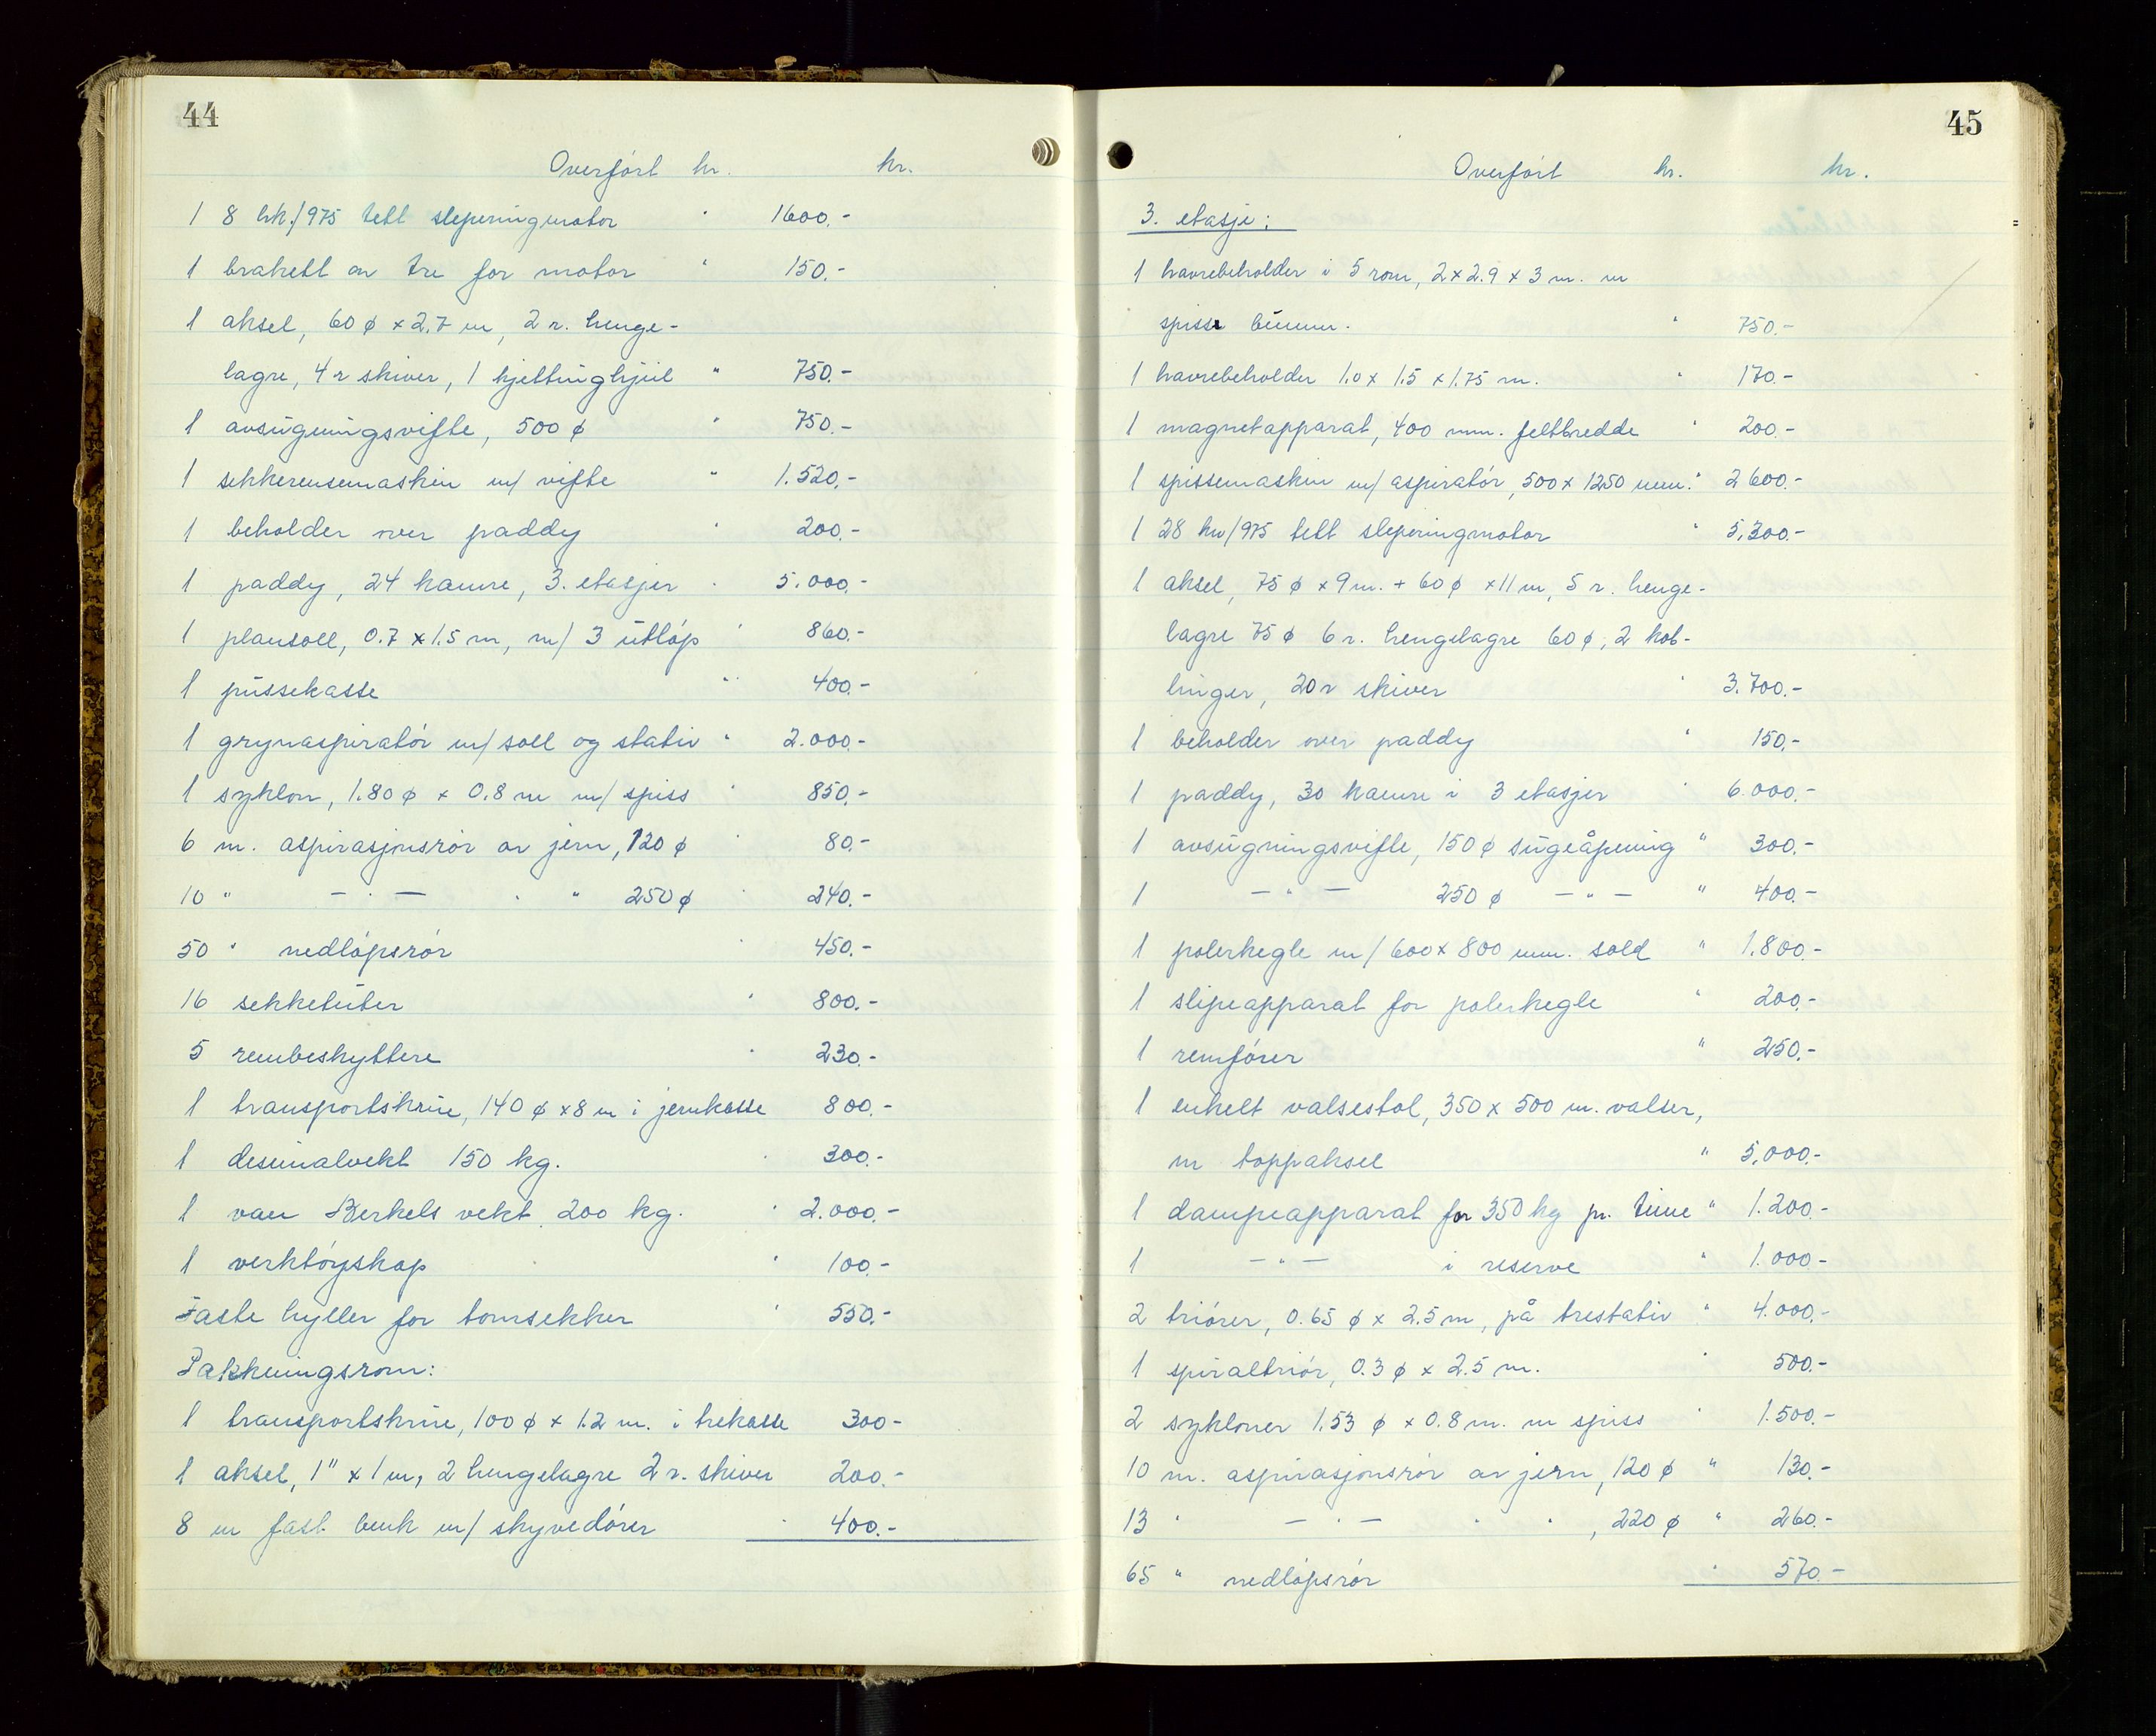 44
Overført kr. kr.
1 8 hk./975 tett sleperingmotor " 1600.-
1 brakett av tre for motor " 150.-
1 aksel, 60 φ x 2.7 m, 2 r. henge-
lagre, 4 r skiver, 1 kjettinghjul " 750.-
1 avsugningsvifte, 500 φ " 750.-
1 sekkerensemaskin m/ vifte " 1.520.-
1 beholder over paddy " 200.-
1 paddy, 24 kamre, 3. etasjer " 5.000.-
1 plansoll, 0.7 x 1.5 m, m/ 3 utløp " 860.-
1 pussekasse " 400.-
1 grynaspiratør m/ soll og stativ " 2.000.-
1 syklon, 1.80 φ x 0.8 m m/ spiss " 850.-
6 m. aspirasjonsrør av jern, 120 φ " 80.-
10 " — " — " " 250 φ " 240.-
50 " nedløpsrør " 450.-
16 sekketuter " 800.-
5 rembeskyttere " 230.-
1 transportskrue, 140 φ x 8 m i jernkasse 800.-
1 desimalvekt 150 kg. " 300.-
1 van Berkels vekt 200 kg. " 2.000.-
1 verktøyskap " 100.-
Faste hyller for tomsekker " 550.-
Pakkningsrom:
1 transportskrue, 100 φ x 1.2 m. i trekasse 300-
1 aksel, 1" x 1 m, 2 hengelagre 2 r. skiver 200.-
8 m fast benk m/ skyvedører " 400.-
45
Overført kr. kr.
3. etasje:
1 havrebeholder i 5 rom, 2 x 2.9 x 3 m. m
spisse bunner. " 750.-
1 havrebeholder 1.0 x 1.5 x 1.75 m. " 170.-
1 magnetapparat, 400 mm. feltbredde " 200.-
1 spissemaskin m/ aspiratør, 500 x 1250 mm. " 2600.-
1 28 kw/975 tett sleperingmotor " 5.300.-
1 aksel, 75 φ x 9 m. + 60 φ x 11 m, 5 r. henge-
lagre 75 φ 6 r. hengelagre 60 φ, 2 kob-
linger, 20 r skiver " 3.700.-
1 beholder over paddy " 150.-
1 paddy, 30 kamre i 3 etasjer " 6.000.-
1 avsugningsvifte, 150 φ sugeåpning " 300.-
1 — " — 250 φ — " — " 400.-
1 polerkegle m/ 600 x 800 mm. sold " 1.800.-
1 slipeapparat for polerkegle " 200.-
1 remfører " 250.-
1 enkelt valsestol, 350 x 500 m. valser,
m toppaksel " 5.000.-
1 dampeapparat for 350 kg pr. time " 1.200.-
1 — " — i reserve " 1.000.-
2 triører, 0.65 φ x 2.5 m, på trestativ " 4.000.-
1 spiraltriør, 0.3 φ x 2.5 m. " 500.-
2 sykloner 1.53 φ x 0.8 m. m spiss " 1.500.-
10 m. aspirasjonsrør av jern, 120 φ " 130.-
13 " — " — " " , 220 φ " 260.-
65 " nedløpsrør " 570.-